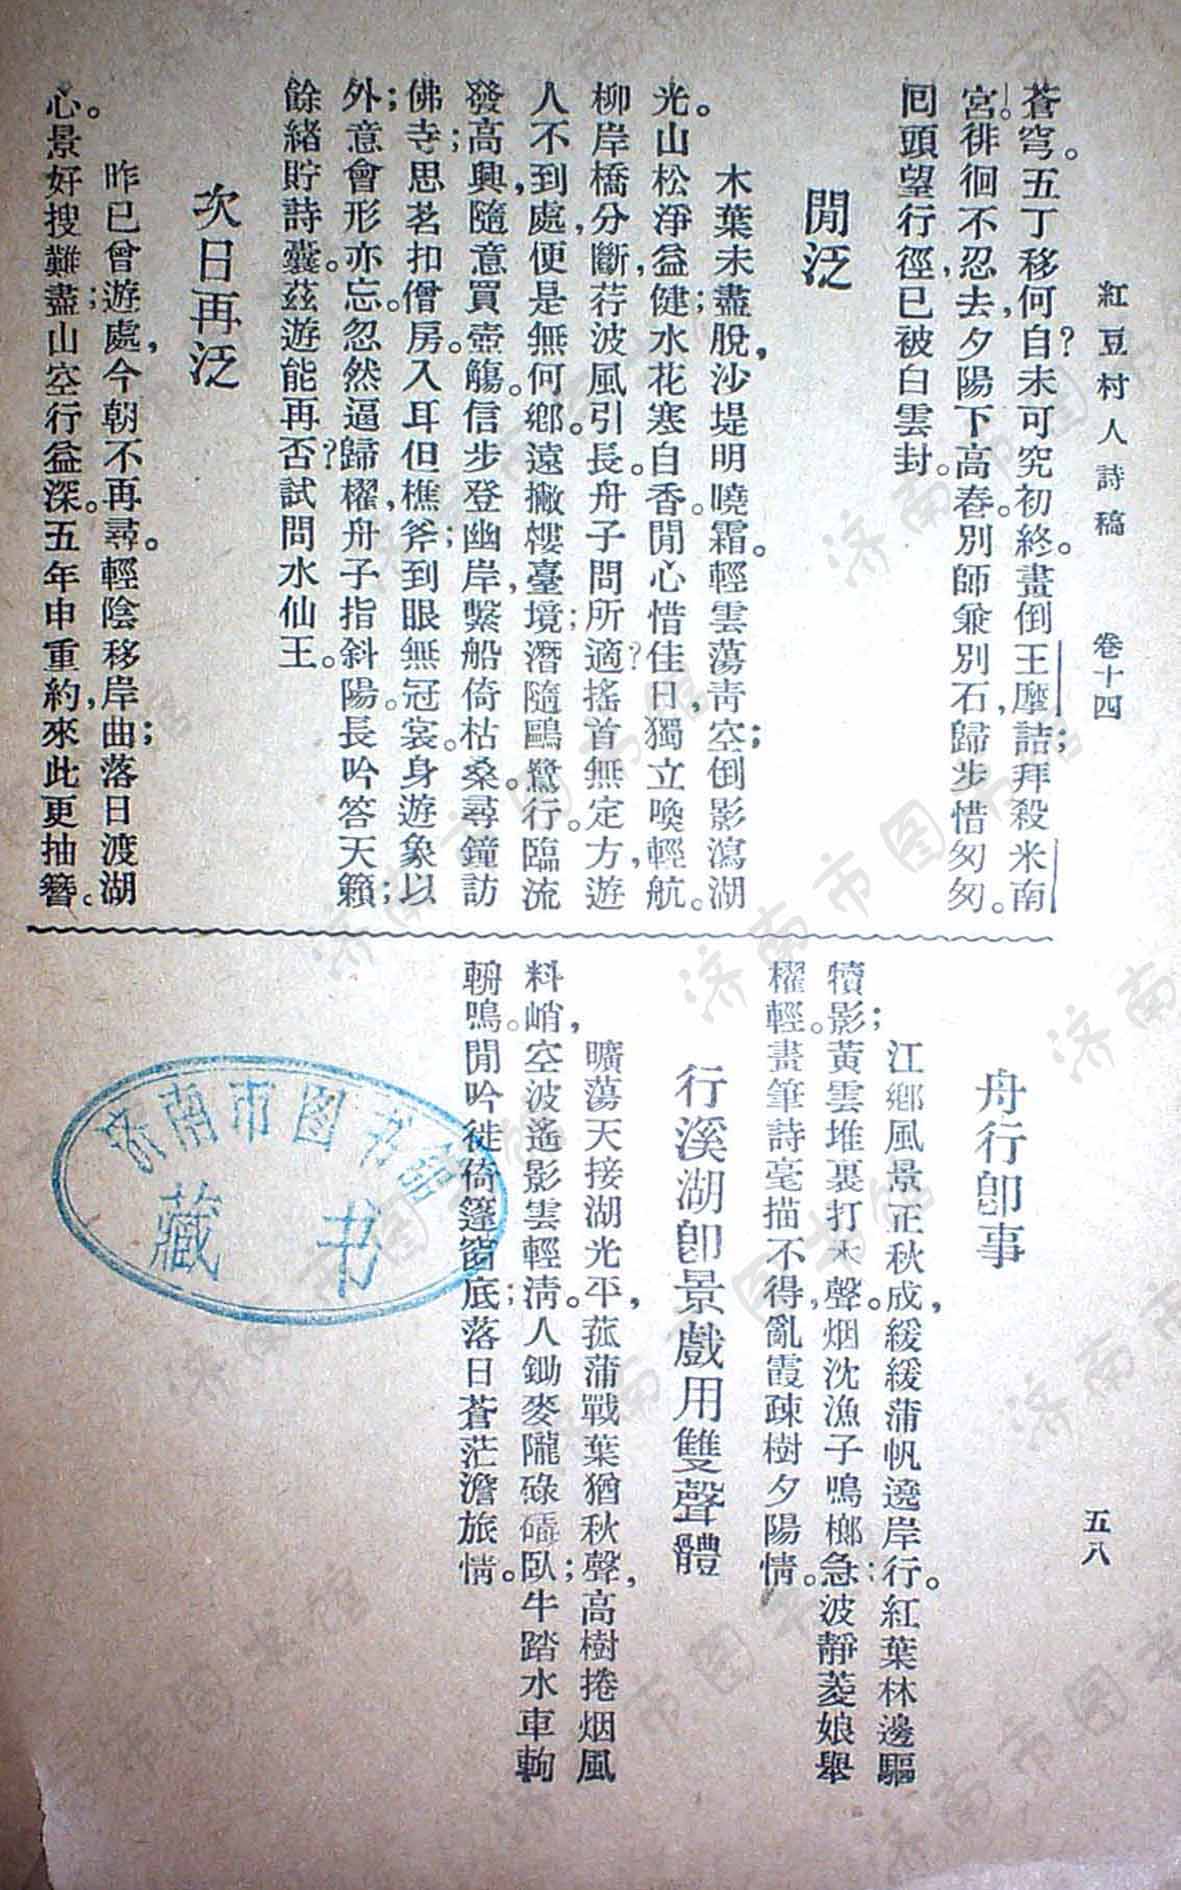 紅豆村人詩稿　卷十四　五八
蒼穹。五丁移何自？未可究初終。畫倒王摩詰，拜殺米南
宮。徘徊不忍去，夕陽下高舂。別師兼別石，歸步惜匆匆。
回頭望行徑，已被白雲封。
閒泛
木葉未盡脫，沙堤明曉霜。輕雲蕩青空，倒影瀉湖
光。山松淨益健，水花寒自香。閒心惜佳日，獨立喚輕航。
柳岸橋分斷，荇波風引長。舟子問所適？搖首無定方，遊
人不到處，便是無何鄉。遠撇樓臺境，潛隨鷗鷺行。臨流
發高興，隨意買壺觴。信步登幽岸，繫船倚枯桑。尋鐘訪
佛寺，思茗扣僧房。入耳但樵斧，到眼無冠裳。身遊象以
外，意會形亦忘。忽然逼歸櫂，舟子指斜陽。長吟答天籟，
餘緒貯詩囊。茲遊能再否？試問水仙王。
次日再泛
昨已曾遊處，今朝不再尋。輕陰移岸曲，落日渡湖
心。景好搜難盡，山空行益深。五年申重約，來此更抽簪。
舟行卽事
江鄉風景正秋成，緩緩蒲帆遶岸行。紅葉林邊驅
犢影，黃雲堆裏打禾聲。烟沈漁子鳴榔急，波靜菱娘舉
櫂輕。畫筆詩毫描不得，亂霞疎樹夕陽情。
行溪湖卽景戲用雙聲體
曠蕩天接湖光平，菰蒲戰葉猶秋聲，高樹捲烟風
料峭，空波遙影雲輕淸。人鋤麥隴碌碡臥，牛踏水車軥
輈鳴。閒吟徙倚篷窗底，落日蒼茫澹旅情。
济南市图书馆
藏书